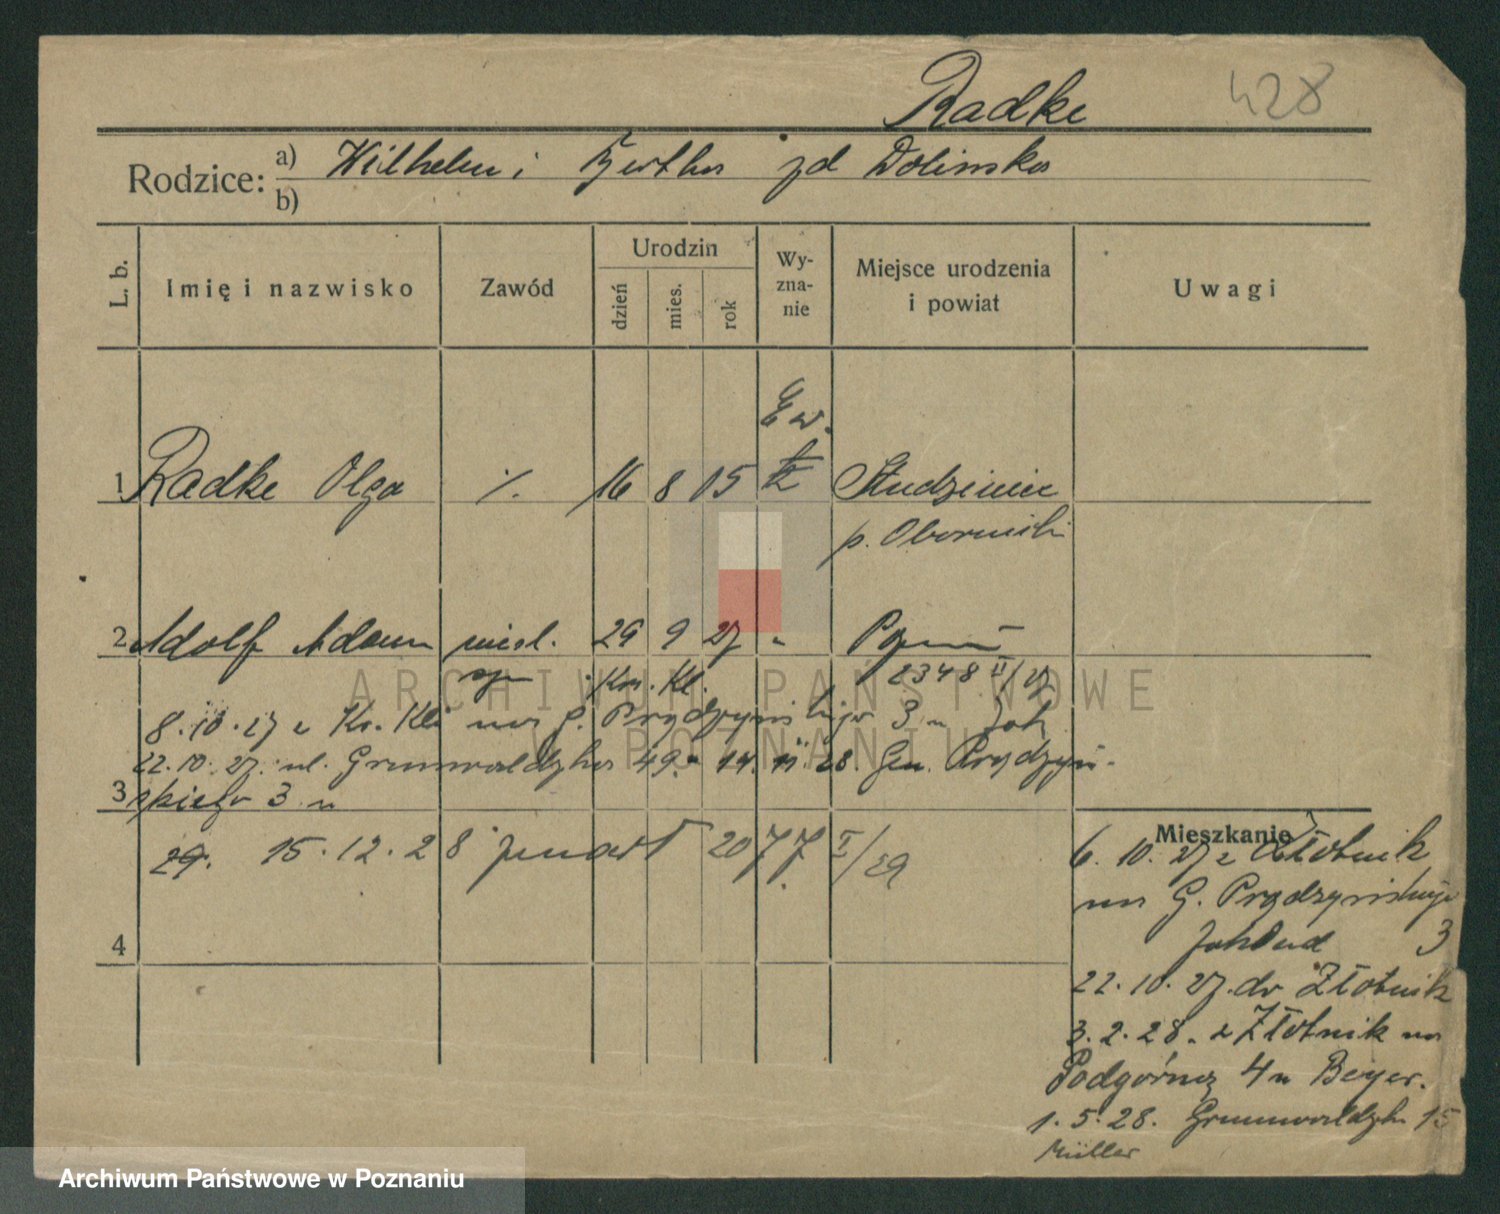 Radke 428
Rodzice: a) Wilhelm i Bertha zd Dolinska
b)
L. b. Imię i nazwisko Zawód Urodzin dzień mies. rok Wy-zna-nie Miejsce urodzenia i powiat Uwagi
Ew.
1 Radke Olga ·/. 16 8 05 Studzieniec
p. Oborniki
2 Adolf Adam niesl. 29 9 27 " Poznań
syn Kr. Kl. 2348 II/27
8.10.27 z Kr. Kli na G. Prądzyńskiego 3 u Joh
22.10.27. ul. Grunwaldzka 49. 14. 11 28. Gen. Prądzyń-
3 skiego 3 u
29. 15.12.28 zmarł 2077 I/29
Mieszkanie
6. 10. 27 z Złotnik
na G. Prądzyńskiego
3
22.10.27. do Złotnik
3.2.28. z Złotnik na
4 Podgórną 4 u Beyer.
1.5.28. Grunwaldzka 15
Müller
ARCHIWUM PAŃSTWOWE
W POZNANIU
Archiwum Państwowe w Poznaniu